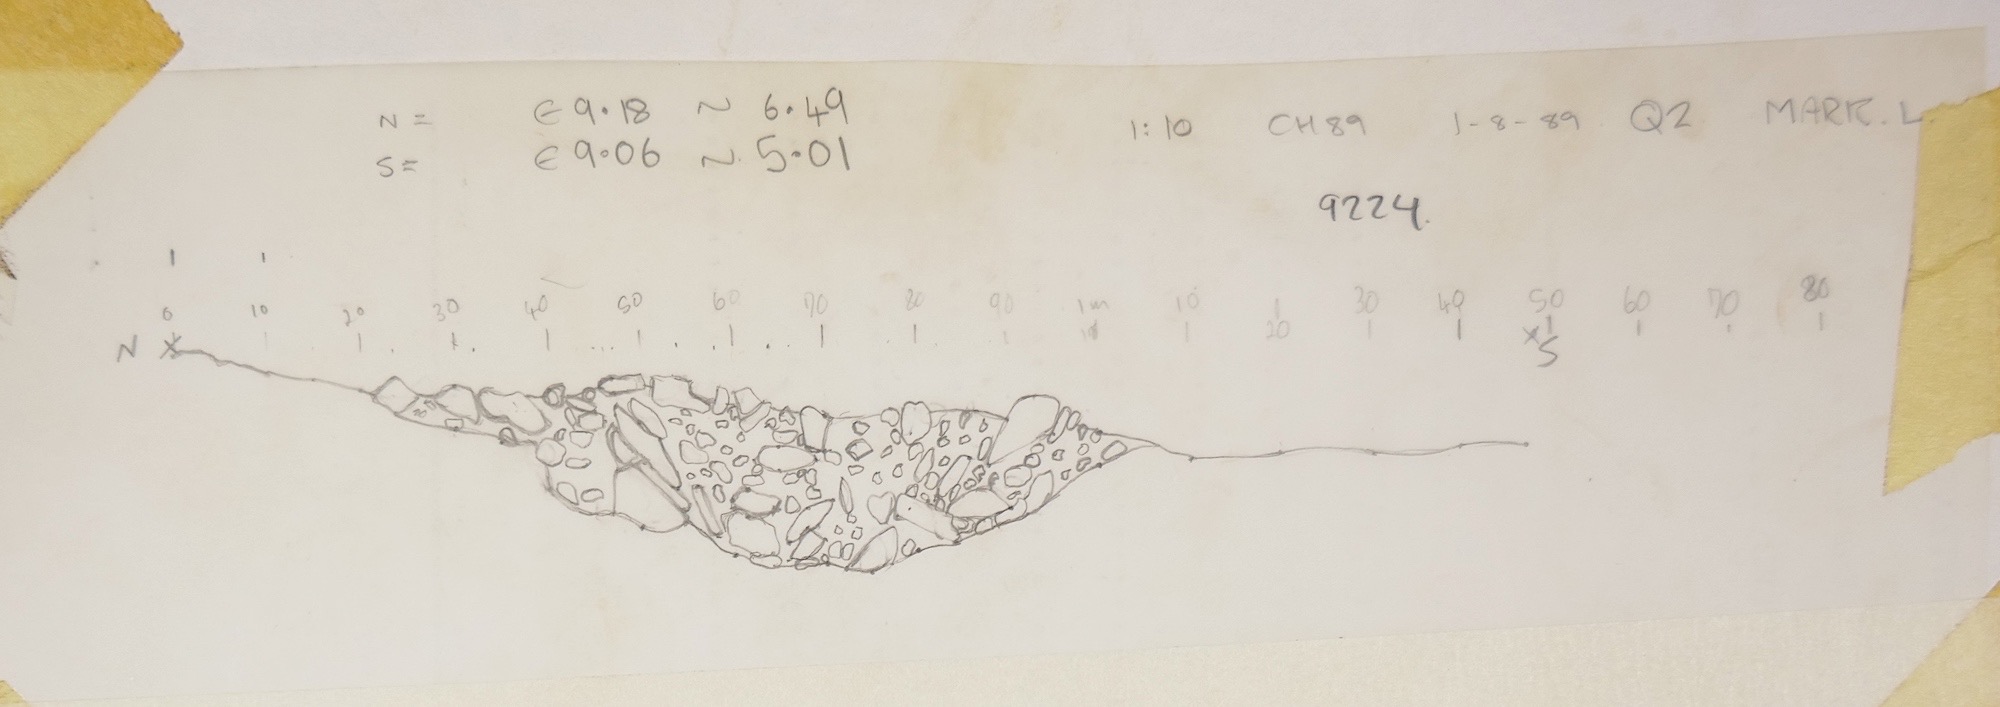 N = E 9.18 N 6.49
S = E 9.06 N 5.01
1:10 CH89 1-8-89 Q2 MARK. L.
9224.
0 10 20 30 40 50 60 70 80 90 1m 10 20 30 40 50 60 70 80
N X
X S